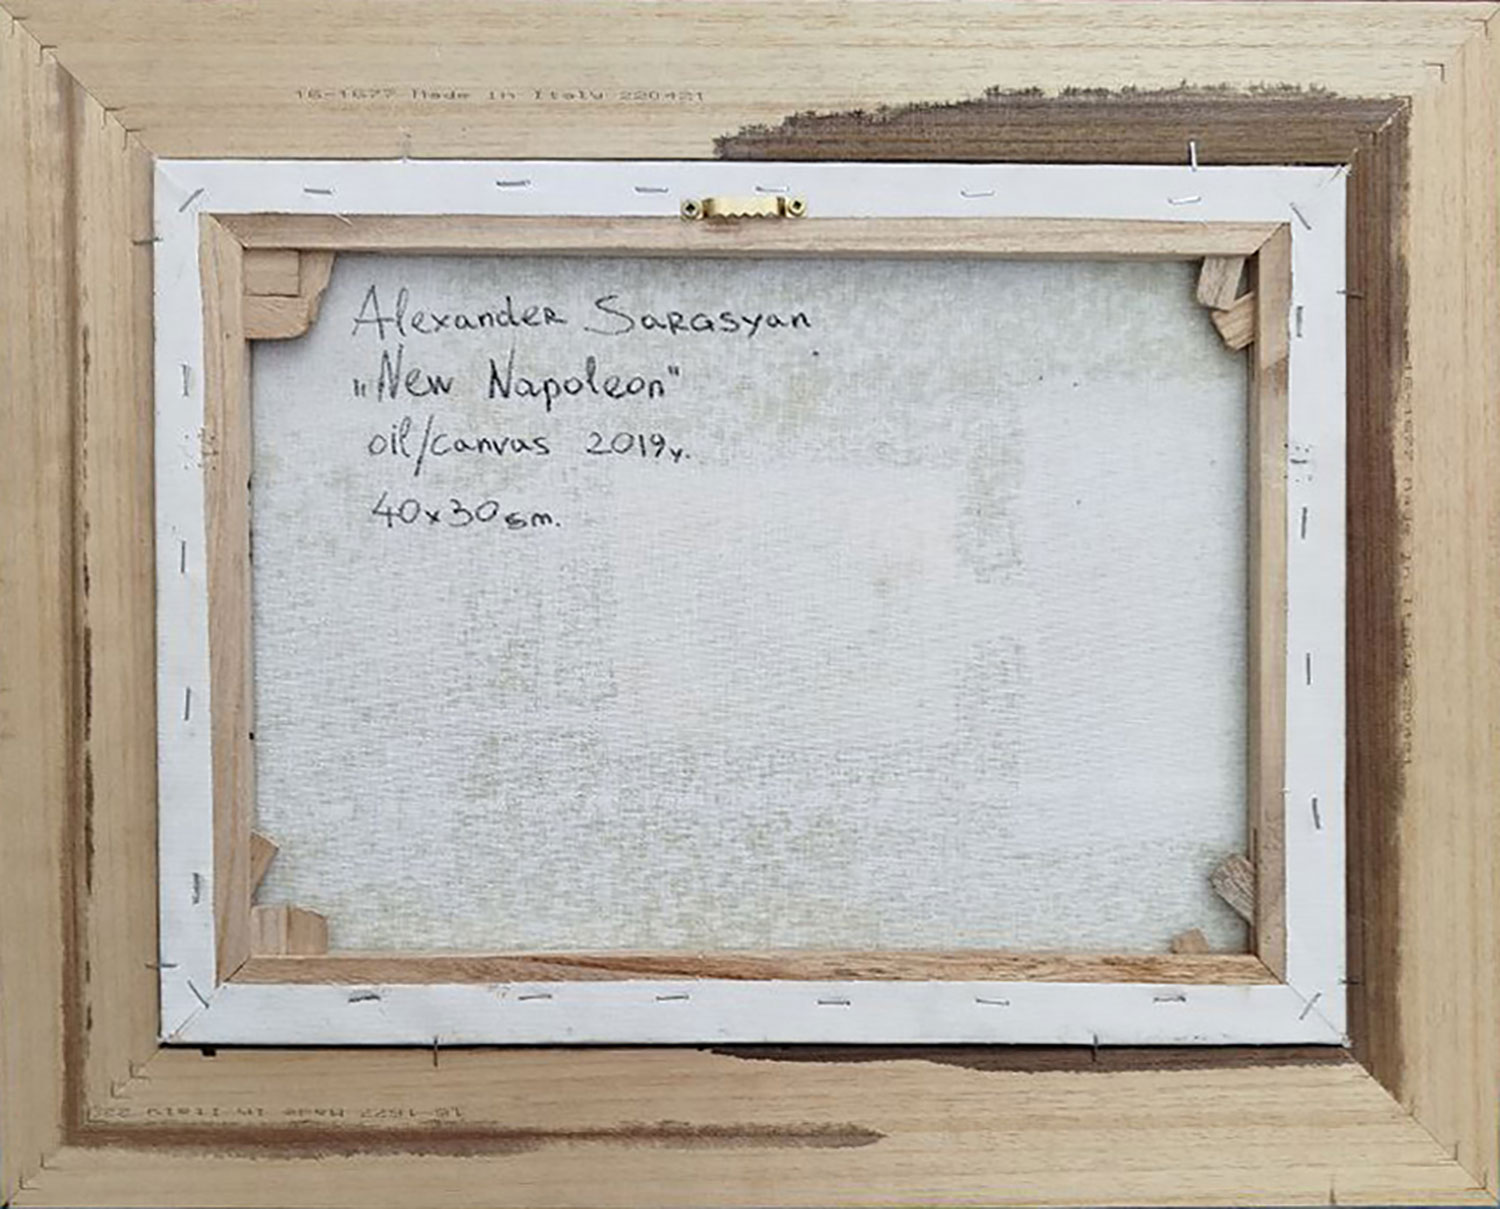 16-1677 Made in Italy 220421
Alexander Sarasyan
„New Napoleon"
oil/canvas 2019y.
40x30sm.
16-1677 Made in Italy 220421
16-1677 Made in Italy 22